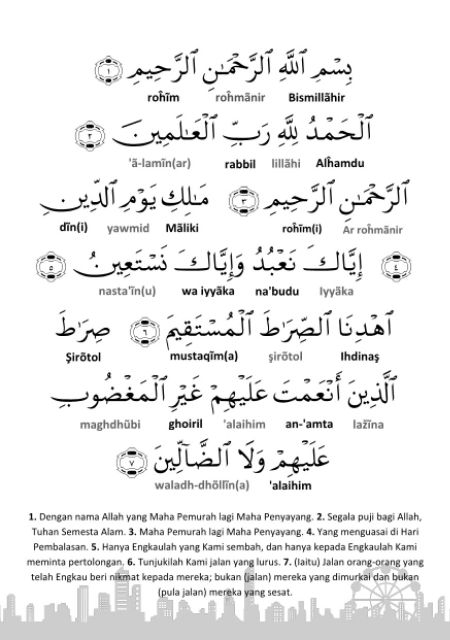 بِسْمِ ٱللَّهِ ٱلرَّحْمَـٰنِ ٱلرَّحِيمِ ١
Bismillãhir roĥmãnir roĥîm
ٱلْحَمْدُ لِلَّهِ رَبِّ ٱلْعَـٰلَمِينَ ٢
Alĥamdu lillãhi rabbil 'ã-lamîn(ar)
ٱلرَّحْمَـٰنِ ٱلرَّحِيمِ ٣ مَـٰلِكِ يَوْمِ ٱلدِّينِ
Ar roĥmãnir roĥîm(i) Mãliki yawmid dîn(i)
٤ إِيَّاكَ نَعْبُدُ وَإِيَّاكَ نَسْتَعِينُ ٥
Iyyãka na'budu wa iyyãka nasta'în(u)
ٱهْدِنَا ٱلصِّرَٰطَ ٱلْمُسْتَقِيمَ ٦ صِرَٰطَ
Ihdinaş şirõtol mustaqîm(a) Şirõtol
ٱلَّذِينَ أَنْعَمْتَ عَلَيْهِمْ غَيْرِ ٱلْمَغْضُوبِ
lažîna an-'amta 'alaihim ghoiril maghdhûbi
عَلَيْهِمْ وَلَا ٱلضَّآلِّينَ ٧
'alaihim waladh-dhõllîn(a)
1. Dengan nama Allah yang Maha Pemurah lagi Maha Penyayang. 2. Segala puji bagi Allah,
Tuhan Semesta Alam. 3. Maha Pemurah lagi Maha Penyayang. 4. Yang menguasai di Hari
Pembalasan. 5. Hanya Engkaulah yang Kami sembah, dan hanya kepada Engkaulah Kami
meminta pertolongan. 6. Tunjukilah Kami jalan yang lurus. 7. (Iaitu) Jalan orang-orang yang
telah Engkau beri nikmat kepada mereka; bukan (jalan) mereka yang dimurkai dan bukan
(pula jalan) mereka yang sesat.